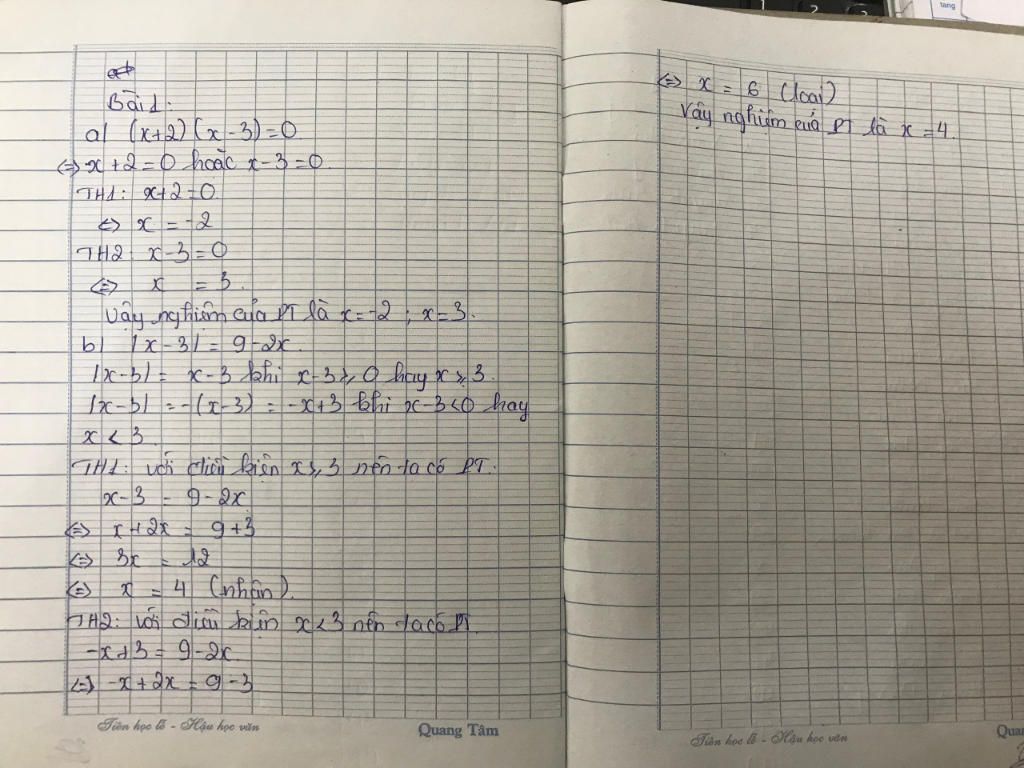 Bài 1:
a) (x+2)(x-3)=0
<=> x+2=0 hoặc x-3=0.
TH1: x+2=0
<=> x = -2
TH2: x-3=0
<=> x = 3.
Vậy nghiệm của PT là x=-2 ; x=3.
b) |x-3| = 9-2x.
|x-3| = x-3 khi x-3 ≥ 0 hay x ≥ 3.
|x-3| = -(x-3) = -x+3 khi x-3<0 hay
x < 3.
TH1: với điều kiện x ≥ 3 nên ta có PT.
x-3 = 9-2x
<=> x+2x = 9+3
<=> 3x = 12
<=> x = 4 (nhận).
TH2: với điều kiện x<3 nên ta có PT.
-x+3 = 9-2x.
<=> -x+2x = 9-3
Tiên học lễ - Hậu học văn
Quang Tâm
tang
<=> x = 6 (loại)
Vậy nghiệm của PT là x=4.
Tiên học lễ - Hậu học văn